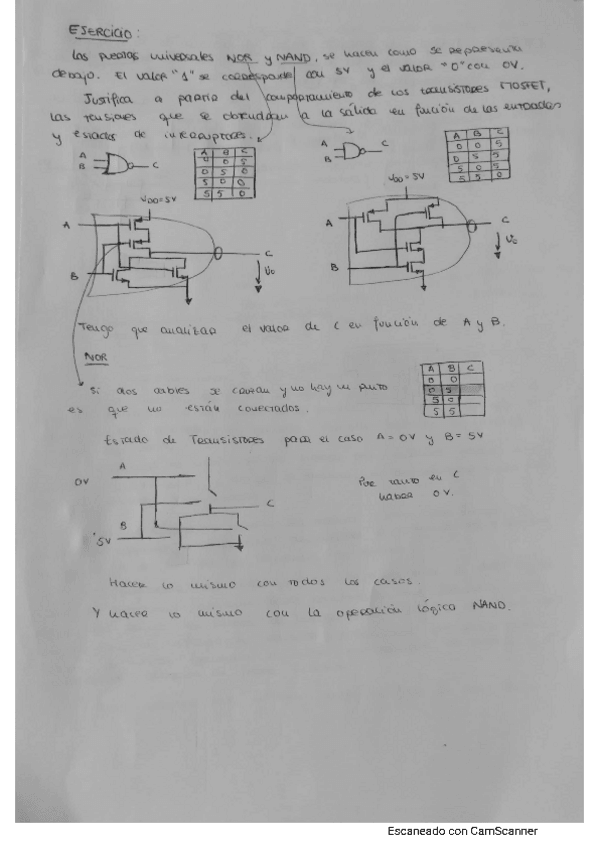 EJERCICIO:
Las puertas universales NOR y NAND, se hacen como se representa
debajo. El valor "1" se corresponde con 5V y el valor "0" con 0V.
Justifica a partir del comportamiento de los transistores MOSFET,
las tensiones que se obtendrán a la salida en función de las entradas
y estados de interruptores.
A
B
C
A B C
0 5
0 5 0
5 0 0
5 5 0
A
B
C
A B C
0 0 5
0 5 5
5 0 5
5 5 0
VDD = 5V
A
B
C
Vo
VDD = 5V
A
B
C
Vo
Tengo que analizar el valor de C en función de A y B.
NOR
Si dos cables se cruzan y no hay un punto
es que no están conectados.
A B C
0 0
0 5
5 0
5 5
Estado de Transistores para el caso A = 0V y B = 5V
0V
A
B
5V
C
Por tanto en C
habrá 0V.
Hacer lo mismo con todos los casos.
Y hacer lo mismo con la operación lógica NAND.
Escaneado con CamScanner